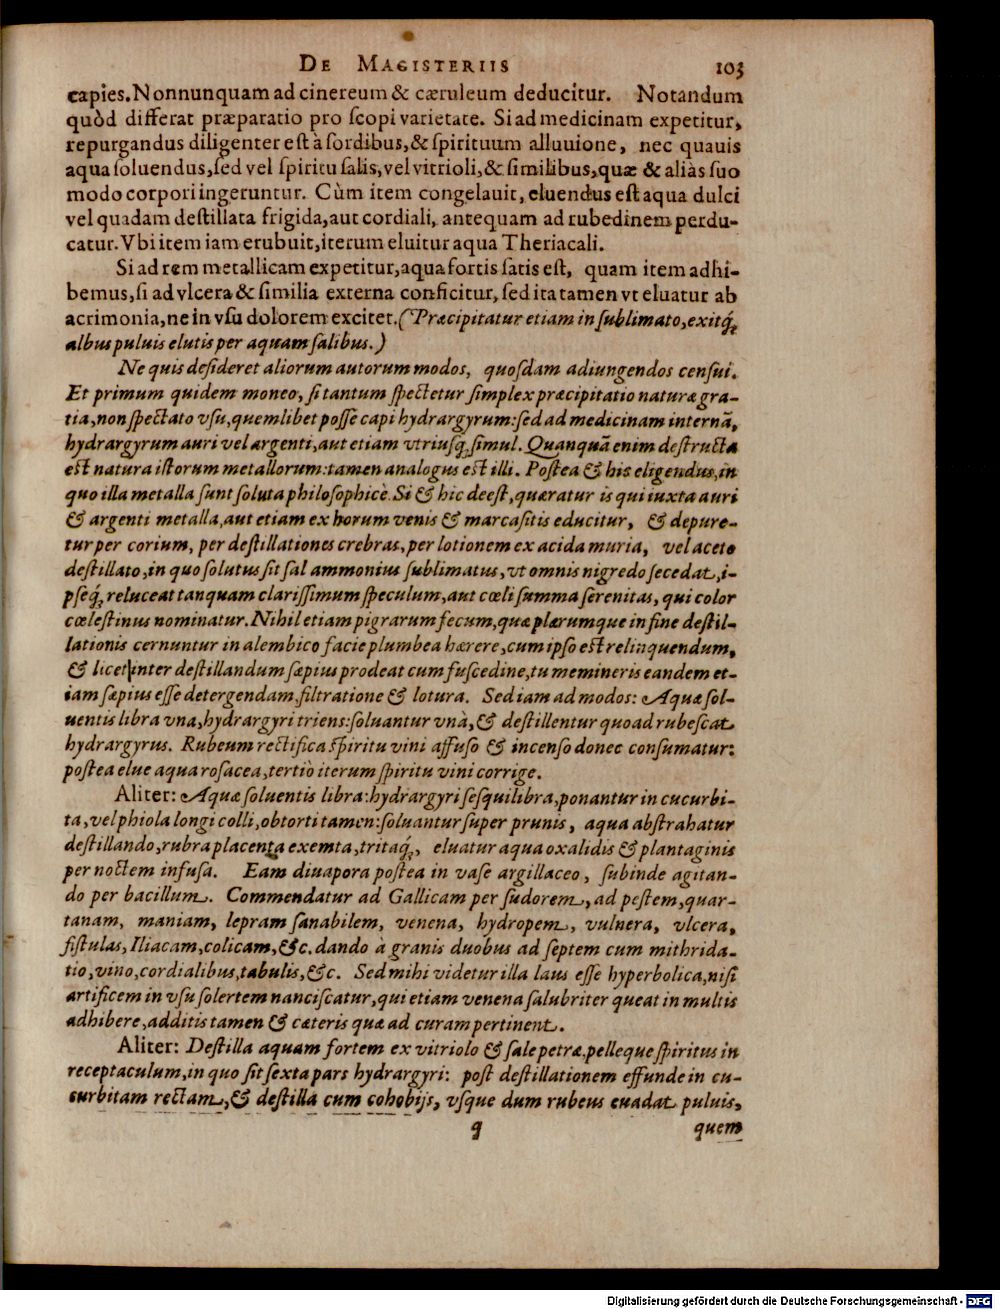 De Magisteriis 103
capies. Nonnunquam ad cinereum & cæruleum deducitur. Notandum
quòd differat præparatio pro ſcopi varietate. Si ad medicinam expetitur,
repurgandus diligenter eſt à ſordibus, & ſpirituum alluuione, nec quauis
aqua ſoluendus, ſed vel ſpiritu ſalis, vel vitrioli, & ſimilibus, quæ & aliàs ſuo
modo corpori ingeruntur. Cùm item congelauit, eluendus eſt aqua dulci
vel quadam deſtillata frigida, aut cordiali, antequam ad rubedinem perdu-
catur. Vbi item iam erubuit, iterum eluitur aqua Theriacali.
Si ad rem metallicam expetitur, aqua fortis ſatis eſt, quam item adhi-
bemus, ſi ad vlcera & ſimilia externa conficitur, ſed ita tamen vt eluatur ab
acrimonia, ne in vſu dolorem excitet. (Præcipitatur etiam in ſublimato, exitq́;
albus puluis elutis per aquam ſalibus.)
Ne quis deſideret aliorum autorum modos, quoſdam adiungendos cenſui.
Et primum quidem moneo, ſi tantum ſpectetur ſimplex præcipitatio naturæ gra-
tia, non ſpectato vſu, quemlibet poſſe capi hydrargyrum: ſed ad medicinam internã,
hydrargyrum auri vel argenti, aut etiam vtriuſq; ſimul. Quanquã enim deſtructa
eſt natura iſtorum metallorum: tamen analogus eſt illi. Poſtea & his eligendus, in
quo illa metalla ſunt ſoluta philoſophicè. Si & hic deeſt, quæratur is qui iuxta auri
& argenti metalla, aut etiam ex horum venis & marcaſitis educitur, & depure-
tur per corium, per deſtillationes crebras, per lotionem ex acida muria, vel aceto
deſtillato, in quo ſolutus ſit ſal ammonius ſublimatus, vt omnis nigredo ſecedat, i-
pſeq́; reluceat tanquam clariſſimum ſpeculum, aut cœli ſumma ſerenitas, qui color
cœleſtinus nominatur. Nihil etiam pigrarum fecum, quæ plærumque in fine deſtil-
lationis cernuntur in alembico facie plumbea hærere, cum ipſo eſt relinquendum,
& licet inter deſtillandum ſæpius prodeat cum fuſcedine, tu memineris eandem et-
iam ſæpius eſſe detergendam, filtratione & lotura. Sed iam ad modos: Aquæ ſol-
uentis libra vna, hydrargyri triens: ſoluantur vnà, & deſtillentur quoad rubeſcat
hydrargyrus. Rubeum rectifica ſpiritu vini affuſo & incenſo donec conſumatur:
poſtea elue aqua roſacea, tertiò iterum ſpiritu vini corrige.
Aliter: Aquæ ſoluentis libra: hydrargyri ſeſquilibra, ponantur in cucurbi-
ta, vel phiola longi colli, obtorti tamen: ſoluantur ſuper prunis, aqua abſtrahatur
deſtillando, rubra placenta exemta, tritaq́;, eluatur aqua oxalidis & plantaginis
per noctem infuſa. Eam diuapora poſtea in vaſe argillaceo, ſubinde agitan-
do per bacillum. Commendatur ad Gallicam per ſudorem, ad peſtem, quar-
tanam, maniam, lepram ſanabilem, venena, hydropem, vulnera, vlcera,
fiſtulas, Iliacam, colicam, &c. dando à granis duobus ad ſeptem cum mithrida-
tio, vino, cordialibus, tabulis, &c. Sed mihi videtur illa laus eſſe hyperbolica, niſi
artificem in vſu ſolertem nanciſcatur, qui etiam venena ſalubriter queat in multis
adhibere, additis tamen & cæteris quæ ad curam pertinent.
Aliter: Deſtilla aquam fortem ex vitriolo & ſale petræ, pelleque ſpiritus in
receptaculum, in quo ſit ſexta pars hydrargyri: poſt deſtillationem effunde in cu-
curbitam rectam, & deſtilla cum cohobijs, vſque dum rubeus euadat puluis,
q quem
Digitalisierung gefördert durch die Deutsche Forschungsgemeinschaft - DFG